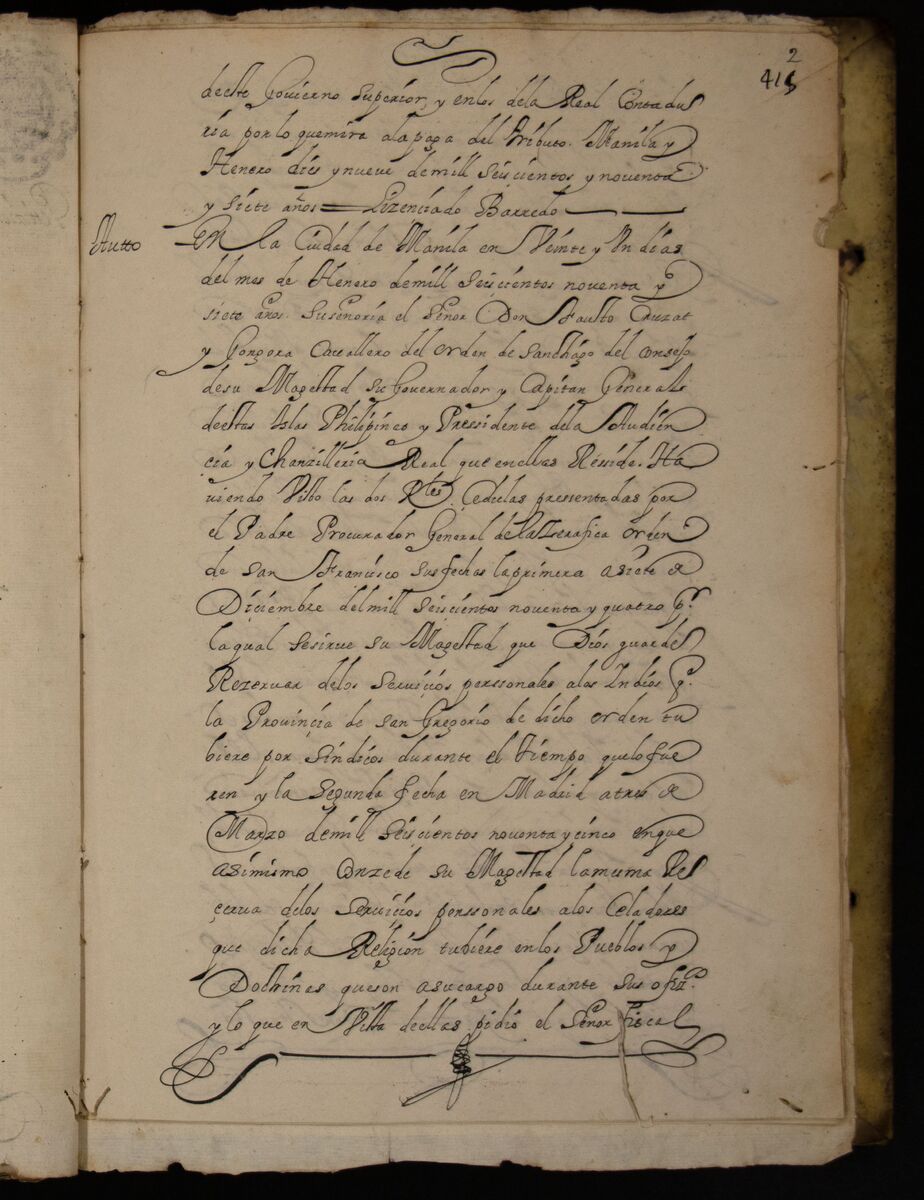 2
415
deeste Govierno Superior, y enlos dela Real Contadu
ria por lo quemira alapaga del tributo. Manila y
Henero dies y nueve demill Seiscientos y noventa
y siete años = Lizenciado Barredo
Autto
En la Ciudad de Manila en Veinte y Un dias
del mes de Henero demill Seiscientos noventa y
siete años. Suseñoria el Señor Don Fausto Cruzat
y Gongora Cavallero del orden de Santhiago del Consejo
desu Magestad Su Governador y Capitan General
deestas Islas Philipinas y Pressidente dela Audien
cia y Chanzilleria Real que enellas Resside. Ha
viendo Visto las dos Rˡᵉˢ Cedulas pressentadas por
el Padre Procurador General de la Serafica orden
de san Francisco sus fechas la primera a siete de
Diciembre delmill Seiscientos noventa y quatro pʳ
laqual sesirve su Magestad que Dios guarde
Rezervar delos Servicios perssonales alos Indios q.
la Provincia de san Gregorio de dicho orden tu
biere por sindicos durante el tiempo quelo fue
ren y la Segunda fecha en Madrid atres de
Marzo demill Seiscientos noventa y cinco enque
asimismo Conzede su Magestad lamisma Re
çerva delos Servicios perssonales alos Celadores
que dicha Religion tubiere enlos Pueblos y
Doctrinas queson asucargo durante sus ofizˢ.
y lo que en Vista deellas pidio el Señor fiscal